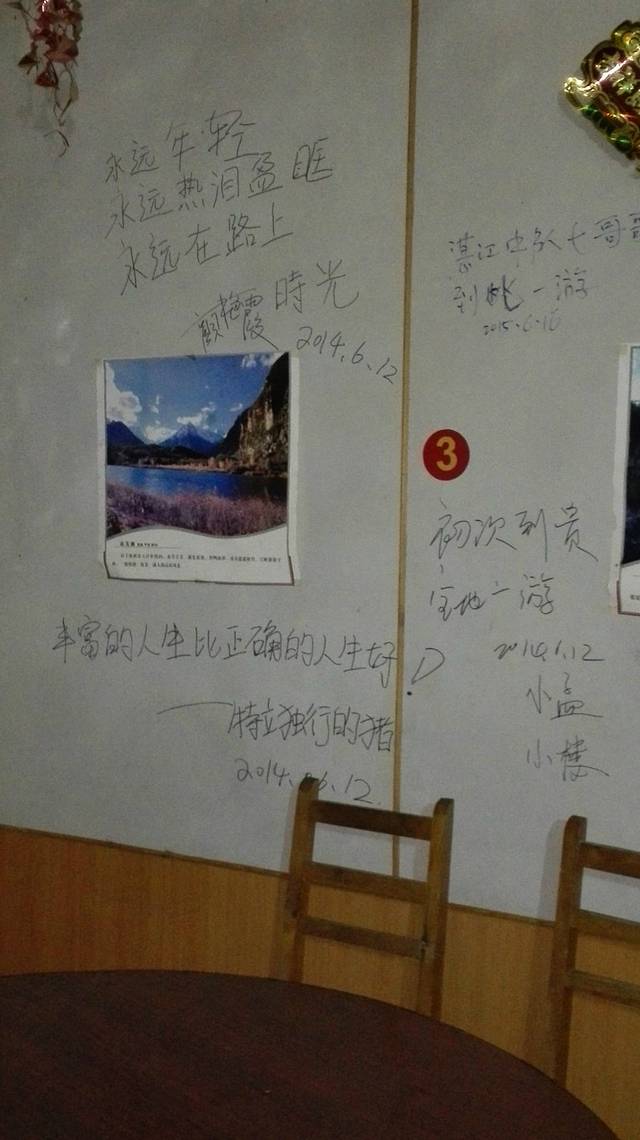 永远年轻
永远热泪盈眶
永远在路上
颜艳霞 時光
2014.6.12
湛江中队七哥哥
到此一游
2015.6.16
3
初次到贵
宝地一游
2014.6.12
小孟
小楼
丰富的人生比正确的人生好
——特立独行的猪
2014.06.12.